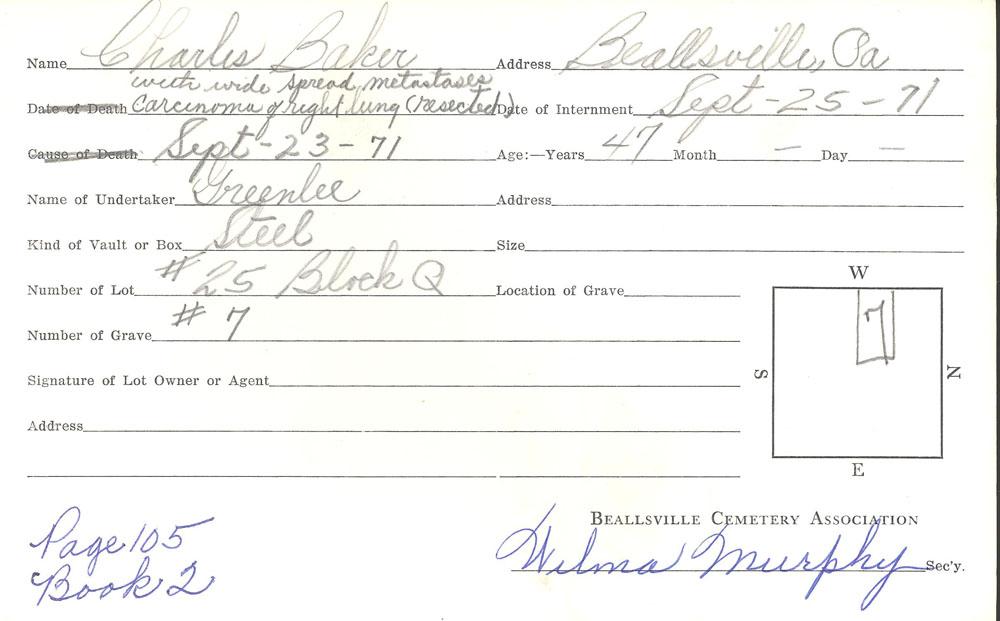 Name Charles Baker Address Beallsville, Pa
with wide spread metastases
Date of Death Carcinoma of right lung (resected) Date of Internment Sept-25-71
Cause of Death Sept-23-71 Age:—Years 47 Month — Day —
Name of Undertaker Greenlee Address
Kind of Vault or Box Steel Size
Number of Lot #25 Block Q Location of Grave
Number of Grave #7
W
7
S N
E
Signature of Lot Owner or Agent
Address
BEALLSVILLE CEMETERY ASSOCIATION
Wilma Murphy Sec'y.
Page 105
Book 2